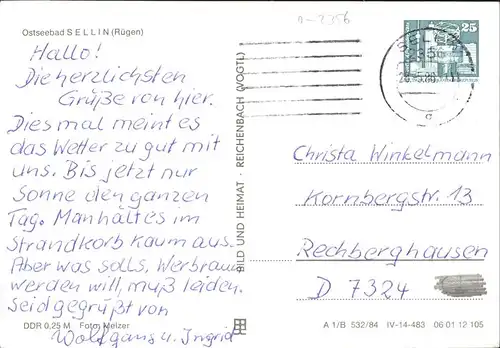 n-2356
Ostseebad SELLIN (Rügen)
Hallo!
Die herzlichsten
Grüße von hier.
Dies mal meint es
das Wetter zu gut mit
uns. Bis jetzt nur
Sonne den ganzen
Tag. Man hält es im
Strandkorb kaum aus.
Aber was solls, Wer braun
werden will, muß leiden.
Seid gegrüßt von
Wolfgang u. Ingrid
DDR 0,25 M Foto: Melzer
BILD UND HEIMAT · REICHENBACH (VOGTL)
25
Christa Winkelmann
Kornbergstr. 13
Rechberghausen
D 7324
A 1/B 532/84 IV-14-483 06 01 12 105